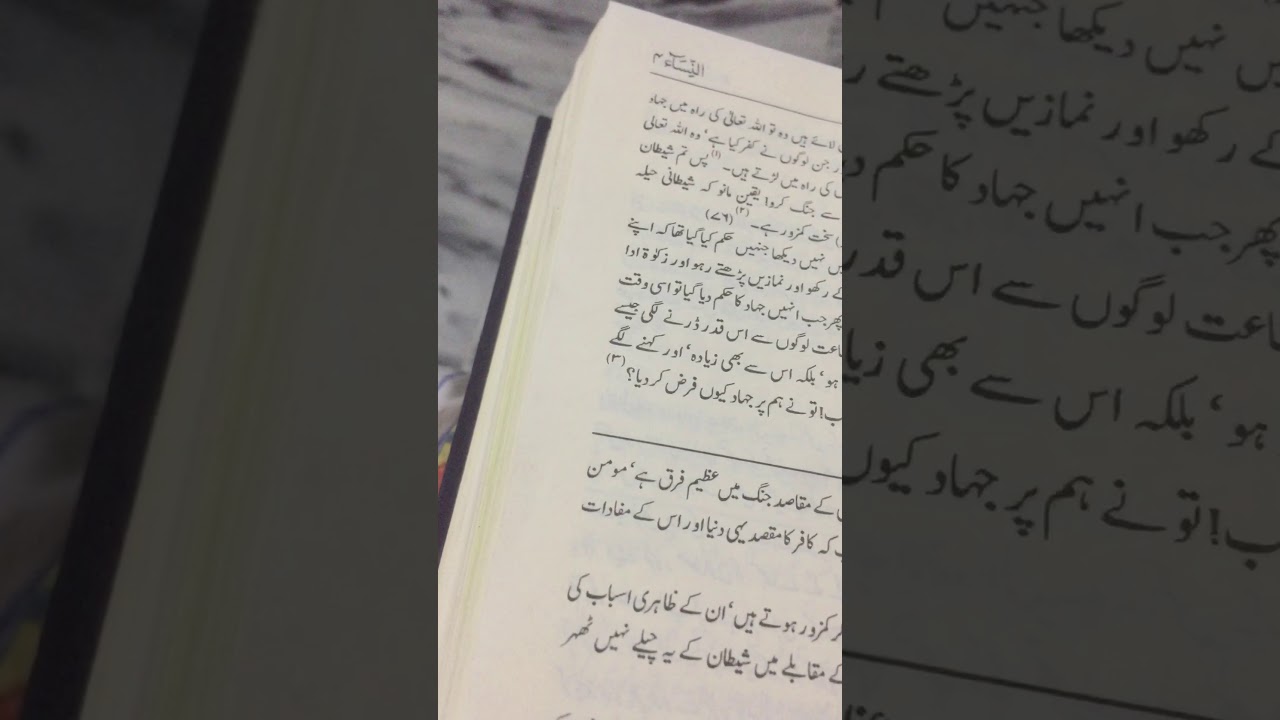 النِّسَآء ۴
لائے ہیں وہ تو اللہ تعالیٰ کی راہ میں جہاد
جن لوگوں نے کفر کیا ہے‘ وہ اللہ تعالیٰ
کی راہ میں لڑتے ہیں۔ (۱) پس تم شیطان
سے جنگ کرو! یقین مانو کہ شیطانی حیلہ
سخت کمزور ہے۔ (۲) (۷۶)
نہیں دیکھا جنہیں حکم کیا گیا تھا کہ اپنے
رکھو اور نمازیں پڑھتے رہو اور زکوٰۃ ادا
پھر جب انہیں جہاد کا حکم دیا گیا تو اسی وقت
لوگوں سے اس قدر ڈرنے لگی جیسے
ہو‘ بلکہ اس سے بھی زیادہ‘ اور کہنے لگے
تو نے ہم پر جہاد کیوں فرض کر دیا؟ (۳)
کے مقاصد جنگ میں عظیم فرق ہے‘ مومن
کہ کافر کا مقصد یہی دنیا اور اس کے مفادات
کمزور ہوتے ہیں‘ ان کے ظاہری اسباب کی
کے مقابلے میں شیطان کے یہ حیلے نہیں ٹھہر
نہیں دیکھا جنہیں
رکھو اور نمازیں پڑھتے
پھر جب انہیں جہاد کا حکم
لوگوں سے اس قدر
ہو‘ بلکہ اس سے بھی
تو نے ہم پر جہاد کیوں